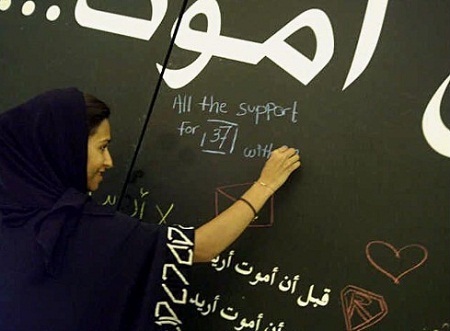 أموت...
All the support
for 37 with
لا أريد
قبل أن أموت أريد
أن أموت أريد